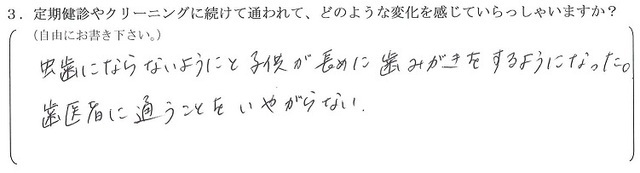 3．定期健診やクリーニングに続けて通われて、どのような変化を感じていらっしゃいますか？
（自由にお書き下さい。）
虫歯にならないようにと子供が長めに歯みがきをするようになった。
歯医者に通うことをいやがらない.